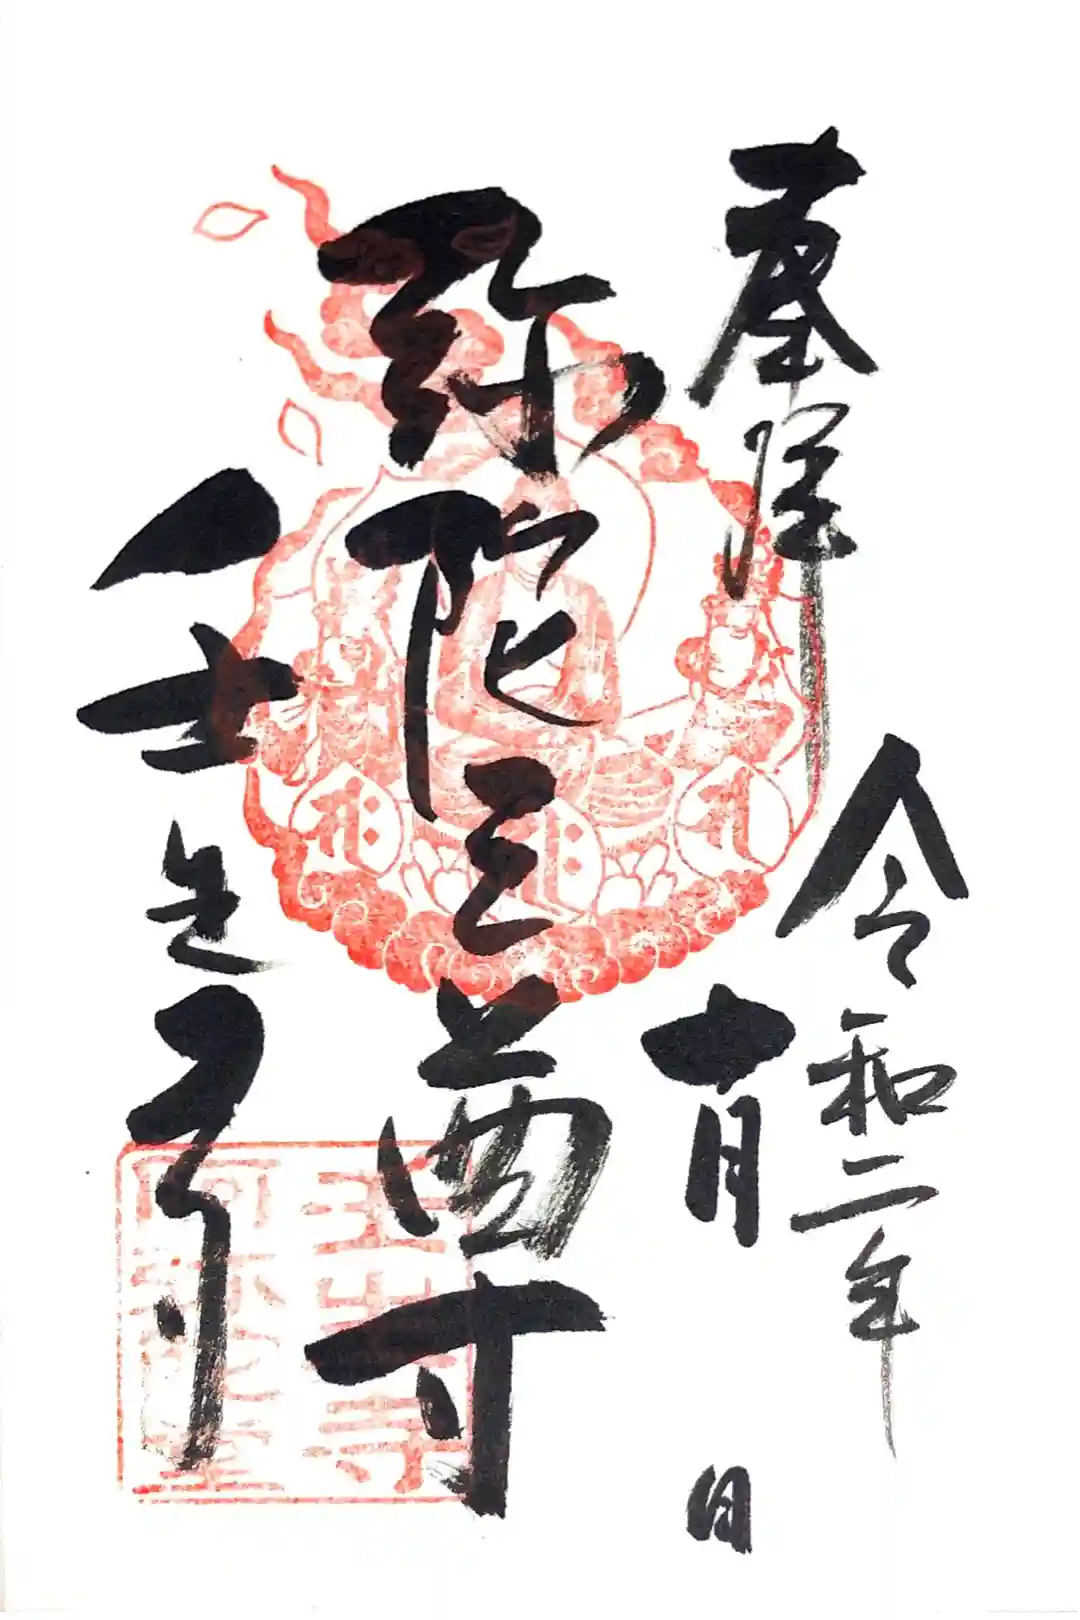 奉拝
令和二年
十月 日
弥陀三尊
壬生寺
壬生寺
阿弥陀堂